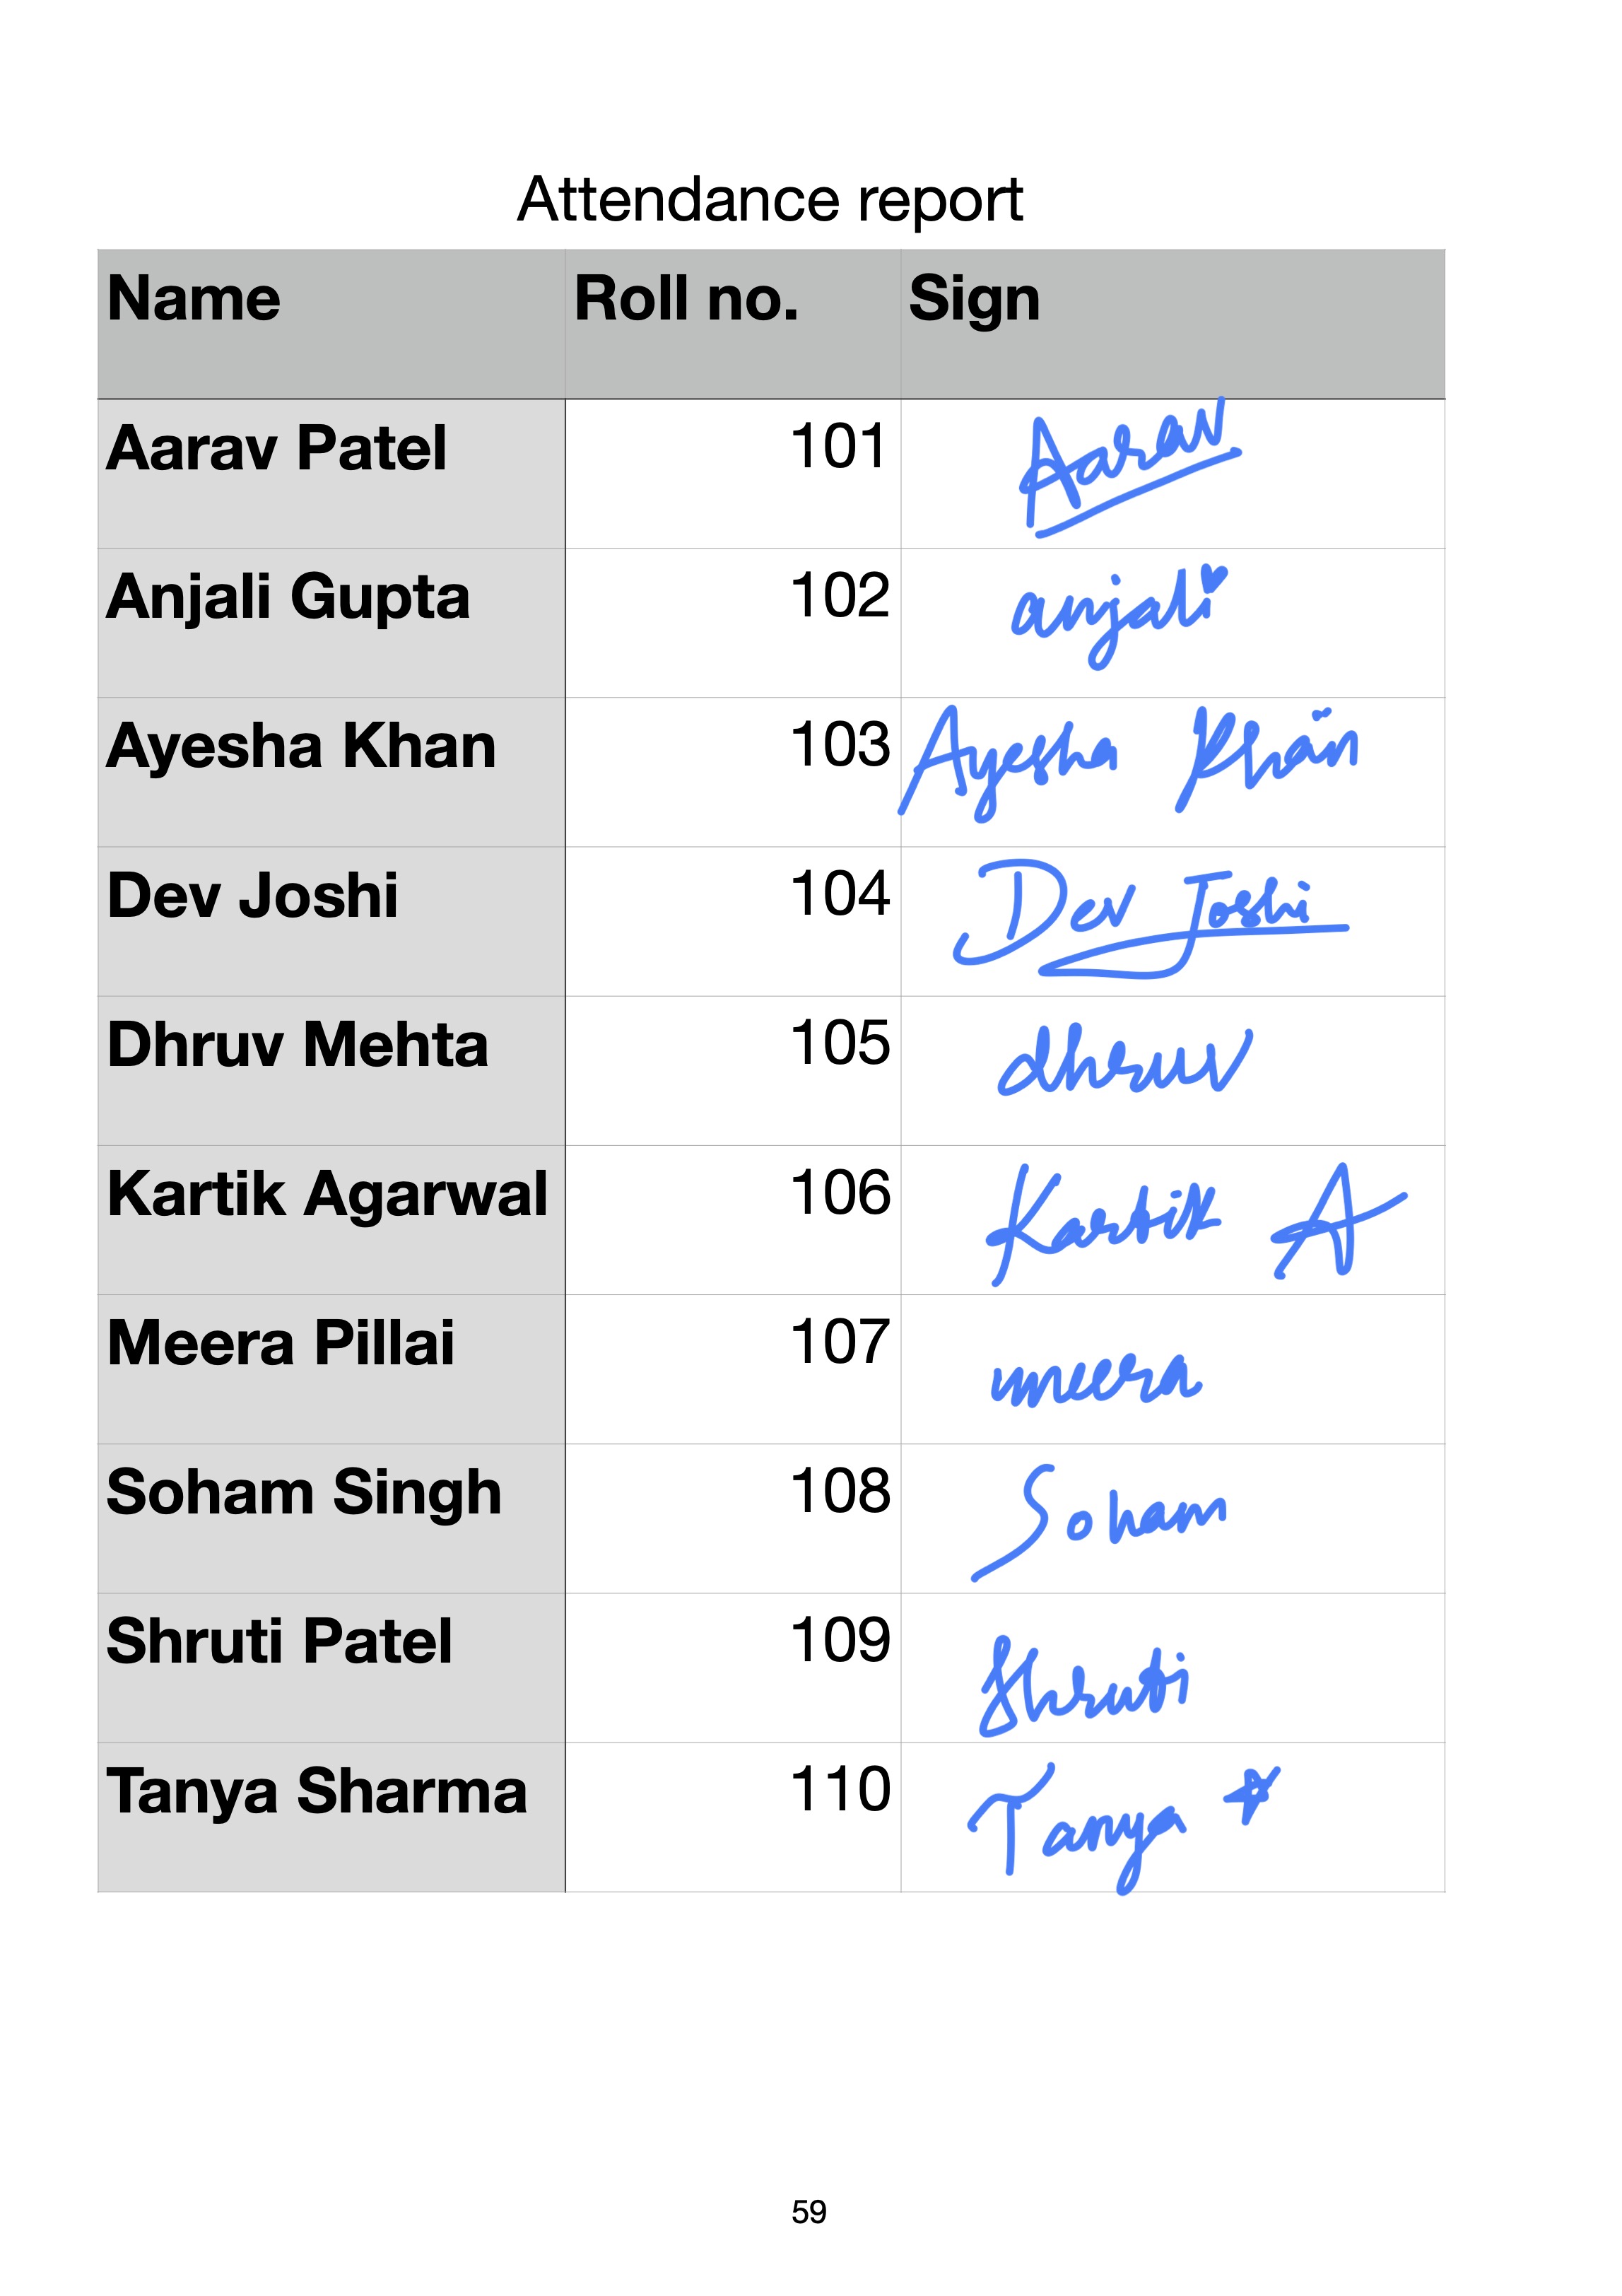 Attendance report
Name Roll no. Sign
Aarav Patel 101 Aarav
Anjali Gupta 102 anjali
Ayesha Khan 103 Ayesha Khan
Dev Joshi 104 Dev Joshi
Dhruv Mehta 105 dhruv
Kartik Agarwal 106 Kartik A
Meera Pillai 107 meera
Soham Singh 108 Soham
Shruti Patel 109 Shruti
Tanya Sharma 110 Tanya
59